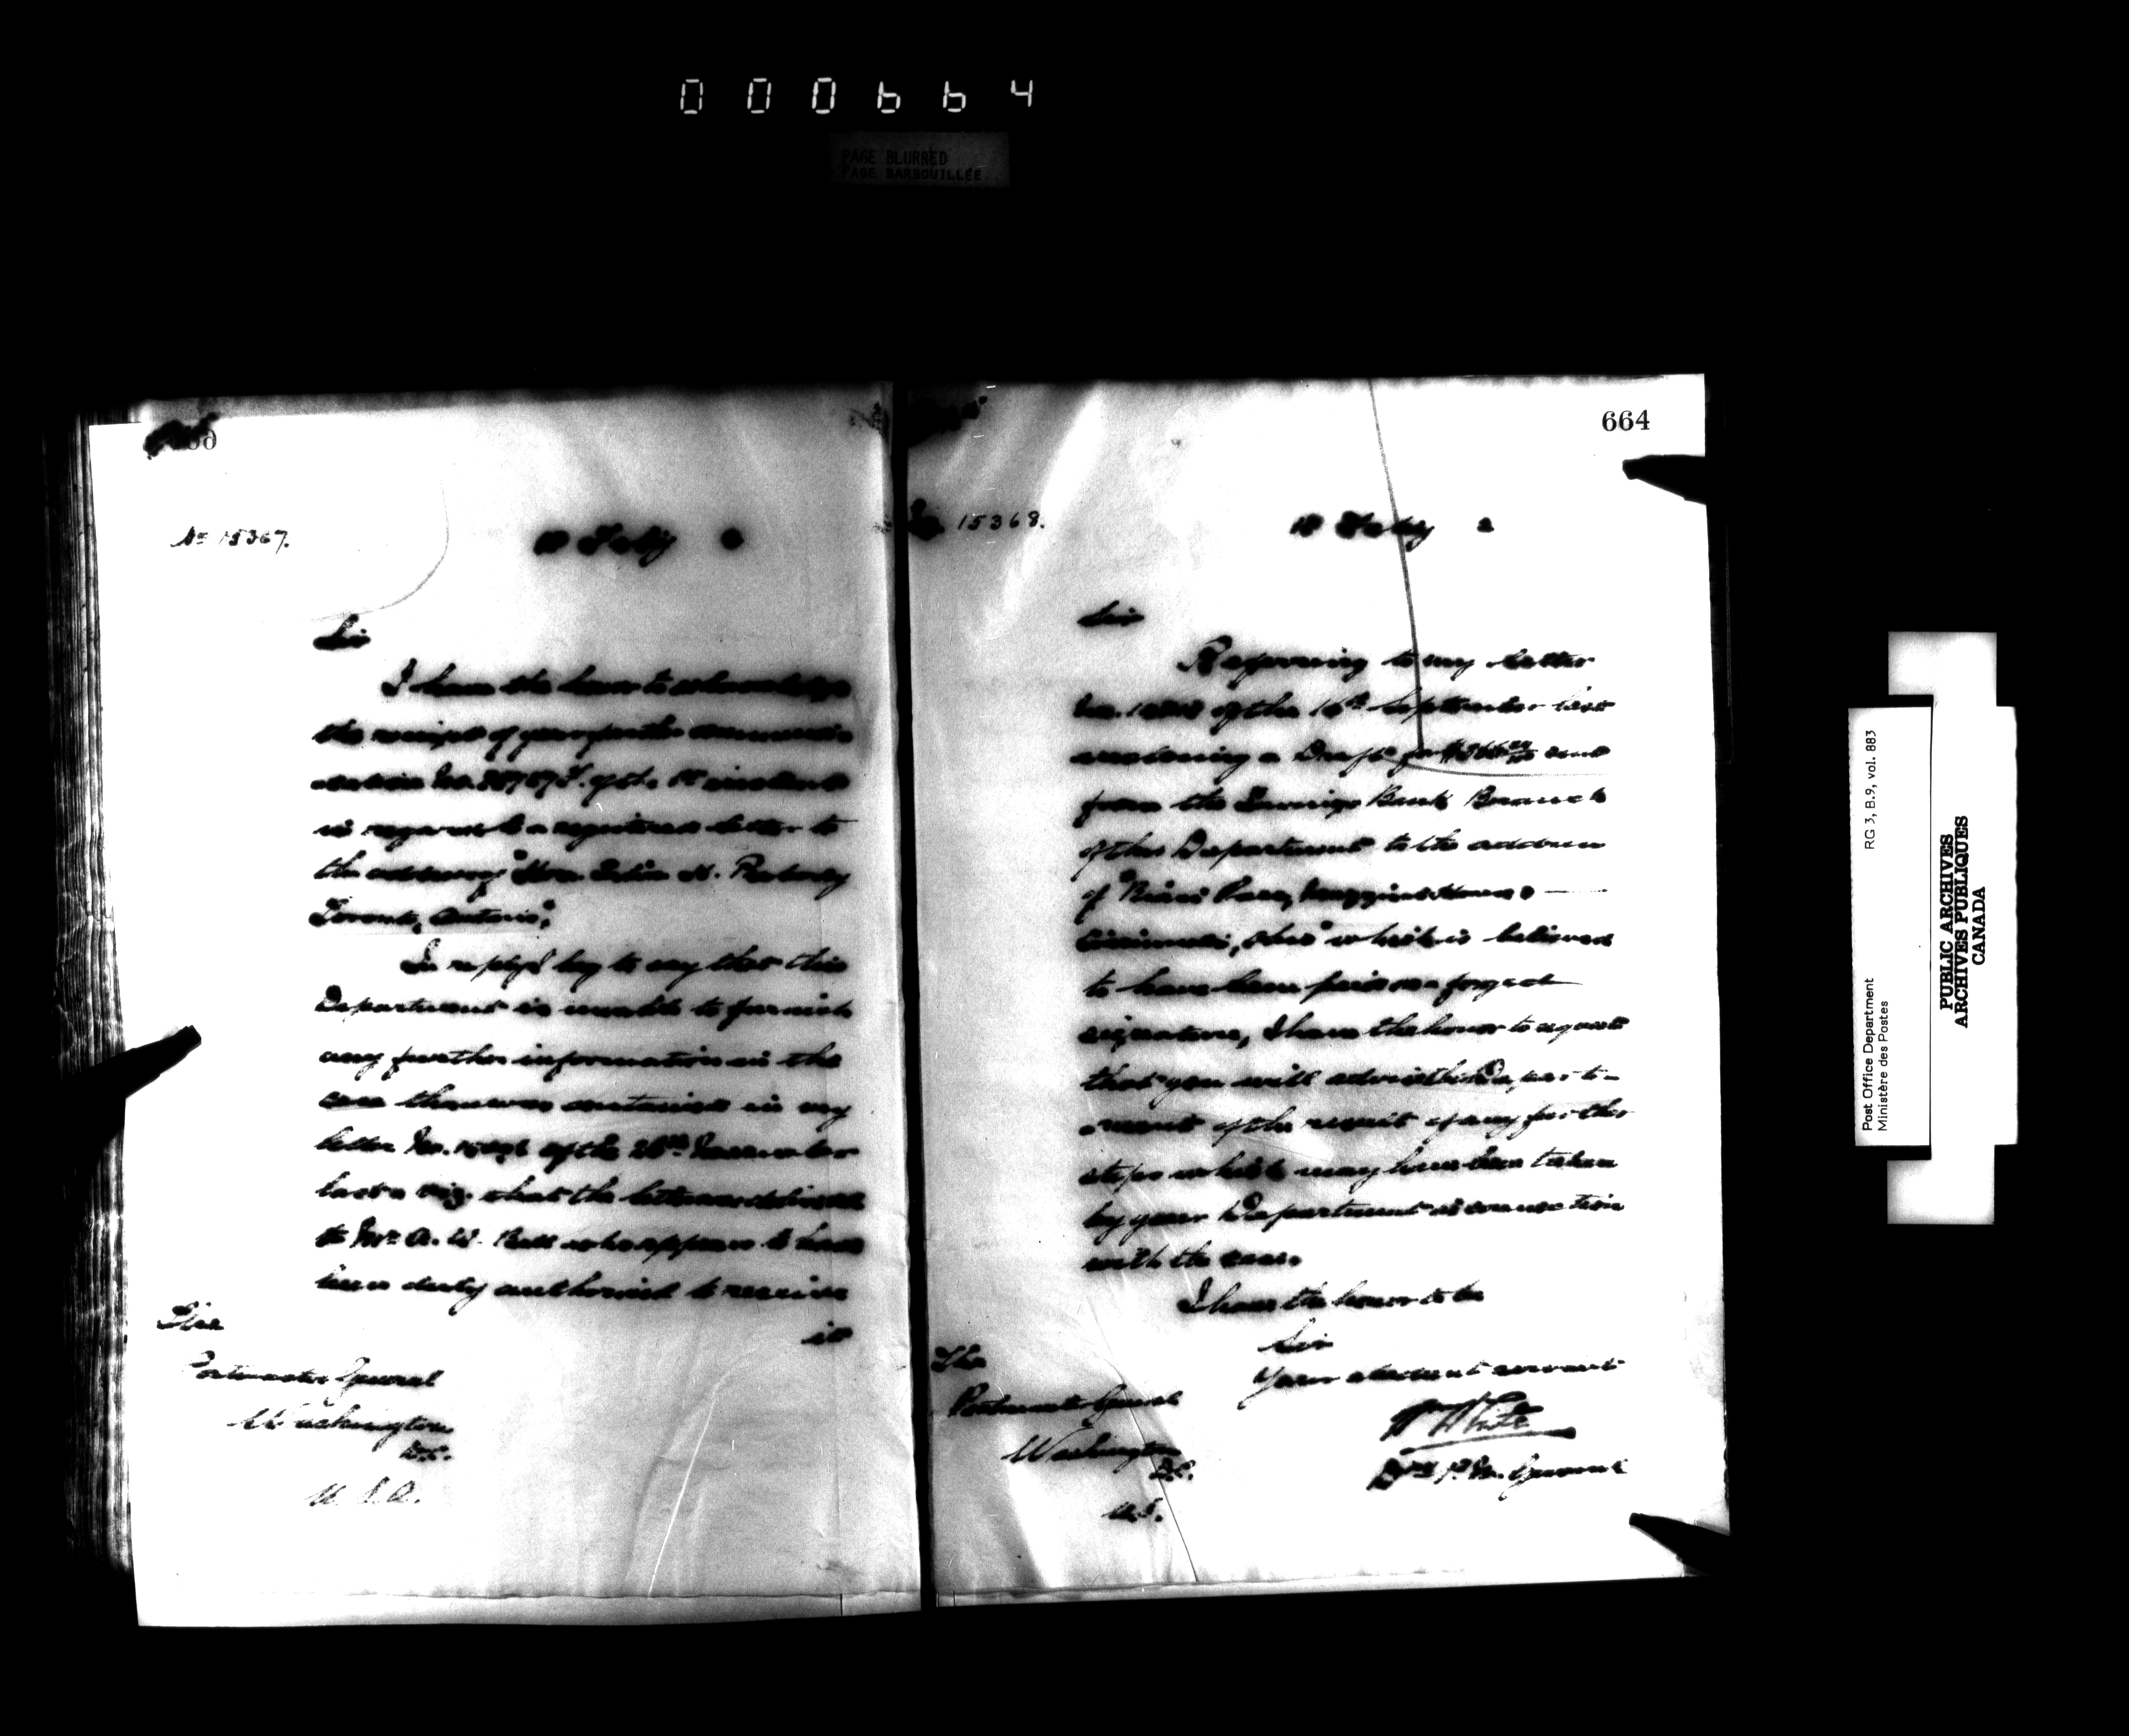 000664
PAGE BLURRED
PAGE BARBOUILLÉE
No 15367.
18 Feby
Sir
I have the honor to acknowledge
the receipt of your further communi-
cation No. of the 1st instant
in regard to a registered letter to
the address of
Toronto, Ontario",
In reply I beg to say that this
Department is unable to furnish
any further information in the
case than was contained in my
letter No. of the
last viz. that the letter was delivered
to Mr. A. W. Bell who appears to have
been duly authorized to receive
it
The
Postmaster General
Washington
D.C.
U.S.A.
664
15368.
18 Feby
Sir
Referring to my letter
No. of the 16th September last
enclosing a Draft for
from the Savings Bank Branch
of this Department to the address
of
Cincinnati, Ohio" which is believed
to have been paid on a forged
signature, I have the honor to request
that you will advise this Depart-
ment of the result of any further
steps which may have been taken
by your Department in connection
with the case.
I have the honor to be
Sir
Your obedient servant
White
Dpy P. M. General
The
Postmaster General
Washington
D.C.
U.S.
Post Office Department
Ministère des Postes
RG 3, B.9, vol. 883
PUBLIC ARCHIVES
ARCHIVES PUBLIQUES
CANADA